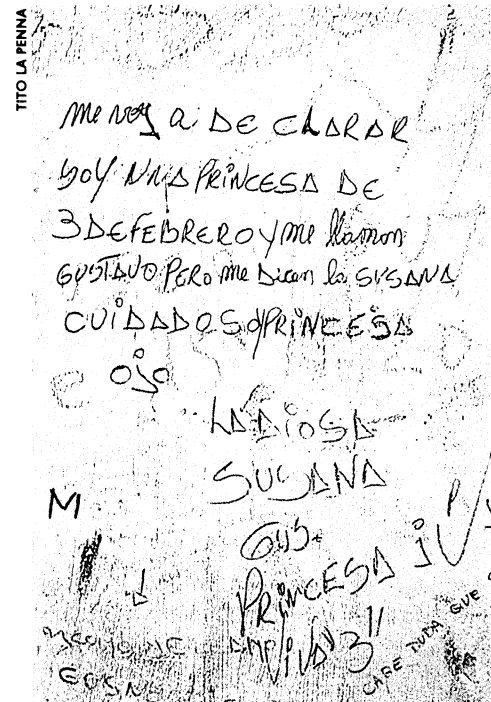 TITO LA PENNA
me voy a DECLARAR
SOY UNA PRINCESA DE
3 DE FEBRERO y me llaman
GUSTAVO PERO me Dicen la SUSANA
CUIDADO SOY PRINCESA
OJO
LA DIOSA
SUSANA
M
GUS.
PRINCESA
VIVA 3
CABE DUDA QUE